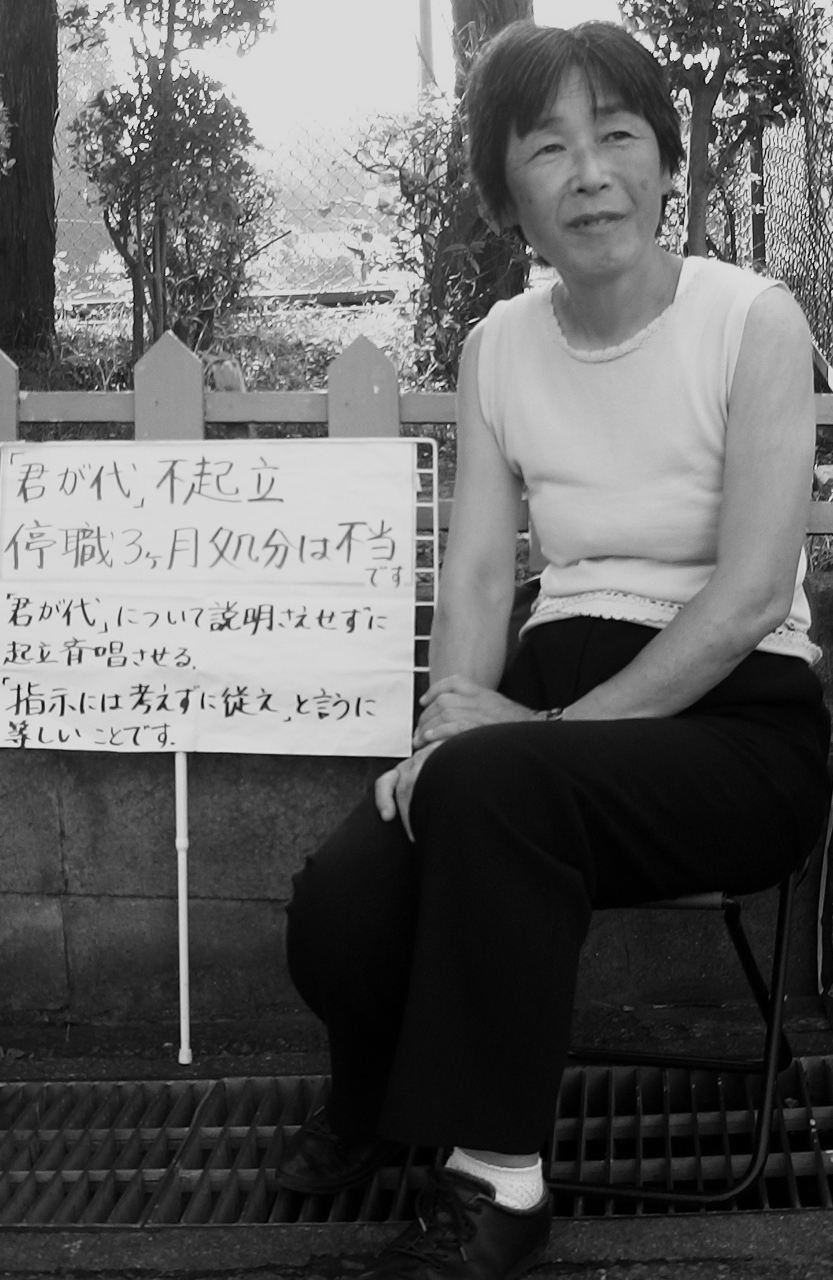 「君が代」不起立
停職3ヶ月処分は不当
です
「君が代」について説明さえせずに
起立斉唱させる.
「指示には考えずに従え」と言うに
等しいことです.